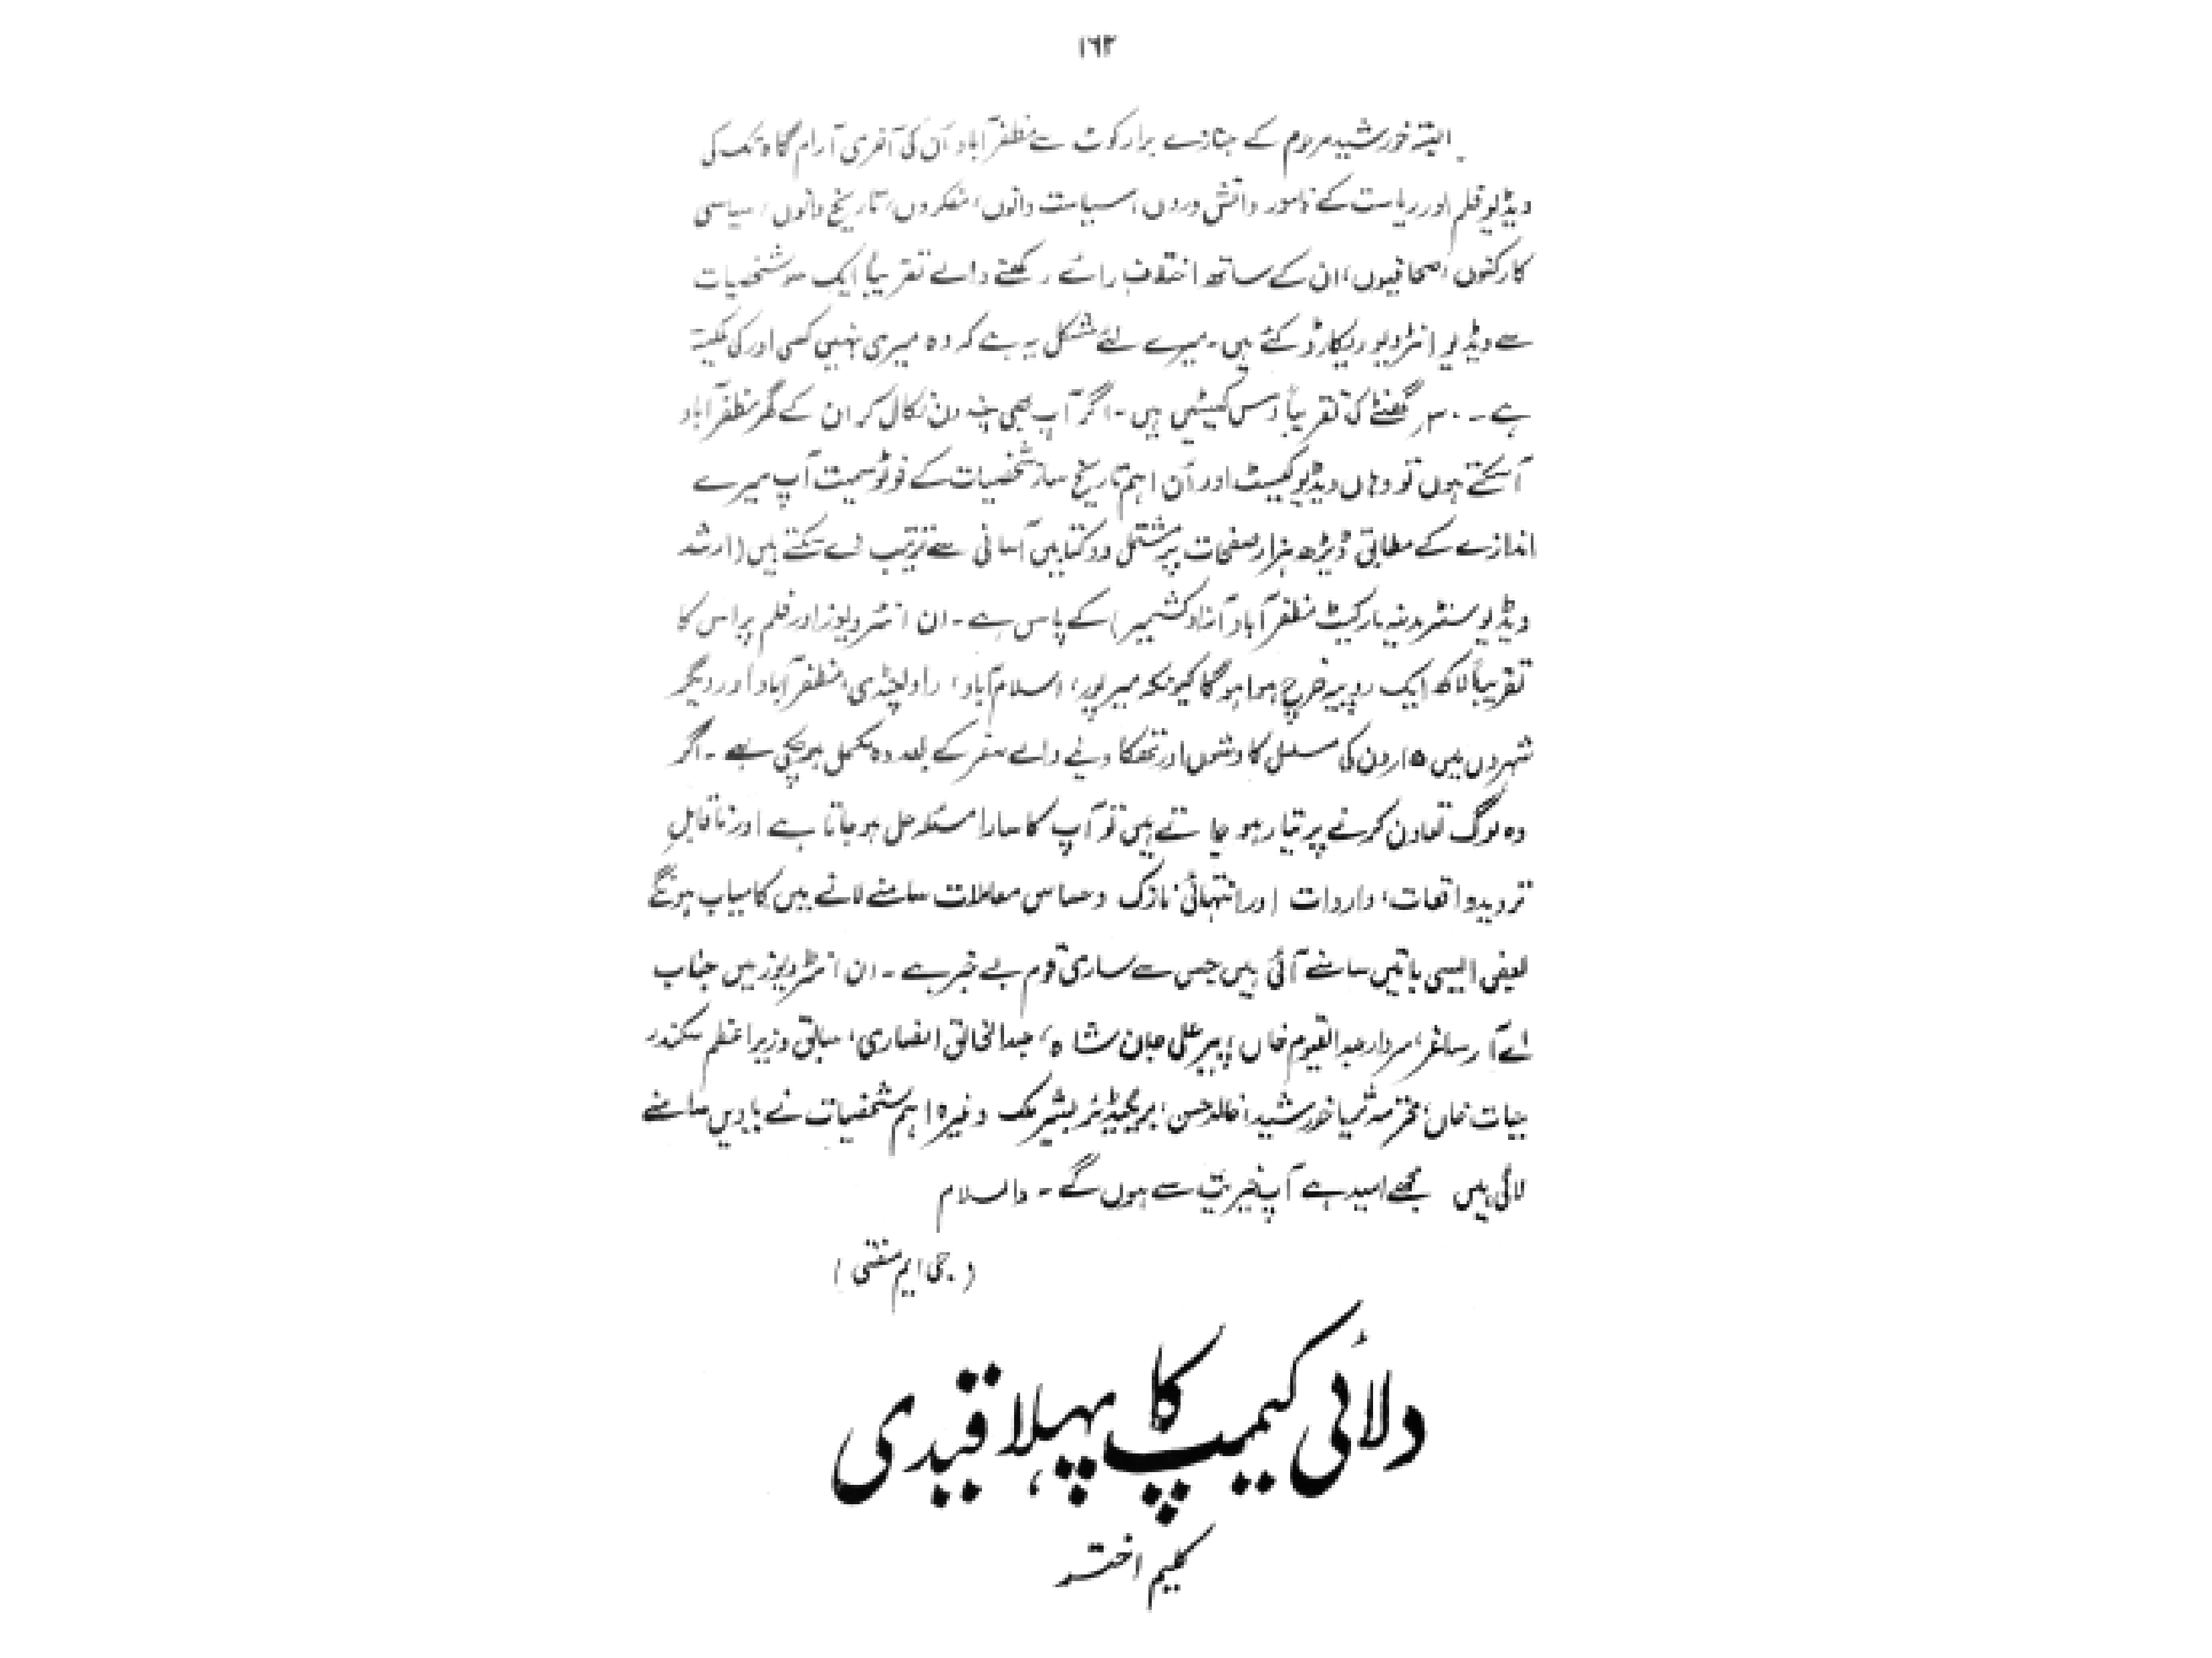 ۱۶۳
البتہ خورشید مرحوم کے جنازے برار کوٹ سے مظفر آباد اُن کی آخری آرام گاہ تک کی
ویڈیو فلم اور ریاست کے نامور دانش وروں، سیاست دانوں، مفکروں، تاریخ دانوں، سیاسی
کارکنوں، صحافیوں، ان کے ساتھ اختلاف رائے رکھنے والے تقریباً ایک سو شخصیات
سے ویڈیو انٹرویو ریکارڈ کئے ہیں۔ میرے لئے مشکل یہ ہے کہ وہ میری نہیں کسی اور کی ملکیت
ہے۔ ۳۰ گھنٹے کی تقریباً دس کیسٹیں ہیں۔ اگر آپ بھی چند دن نکال کر ان کے گھر مظفر آباد
آسکتے ہوں تو وہاں ویڈیو کیسٹ اور اُن اہم تاریخ ساز شخصیات کے فوٹو سمیت آپ میرے
اندازے کے مطابق ڈیڑھ ہزار صفحات پر مشتمل دو کتابیں آسانی سے ترتیب دے سکتے ہیں (ارشد
ویڈیو سنٹر مدینہ مارکیٹ مظفر آباد آزاد کشمیر) کے پاس ہے۔ ان انٹرویوز اور فلم پر اس کا
تقریباً لاکھ ایک روپیہ خرچ ہوا ہو گا کیونکہ میرپور، اسلام آباد، راولپنڈی، مظفر آباد اور دیگر
شہروں میں ۱۵ دن کی مسلسل کاوشوں اور تھکا دینے والے سفر کے بعد وہ مکمل ہو چکی ہے۔ اگر
وہ لوگ تعاون کرنے پر تیار ہو جاتے ہیں تو آپ کا سارا مسئلہ حل ہو جاتا ہے اور ناقابلِ
تردید واقعات، واردات اور انتہائی نازک و حساس معاملات سامنے لانے میں کامیاب ہونگے
بعض ایسی باتیں سامنے آئی ہیں جس سے ساری قوم بے خبر ہے۔ ان انٹرویوز میں جناب
اے آر ساغر، سردار عبدالقیوم خاں، پیر علی جان شاہ، عبدالخالق انصاری، سابق وزیر اعظم سکندر
حیات خاں، محترمہ ثریا خورشید، خالد حسن، بریگیڈیئر بشیر ملک وغیرہ اہم شخصیات نے یادیں سامنے
لائی ہیں مجھے امید ہے آپ خیریت سے ہوں گے۔ والسلام
(جی ایم مفتی)
دلائی کیمپ کا پہلا قیدی
کلیم اختر